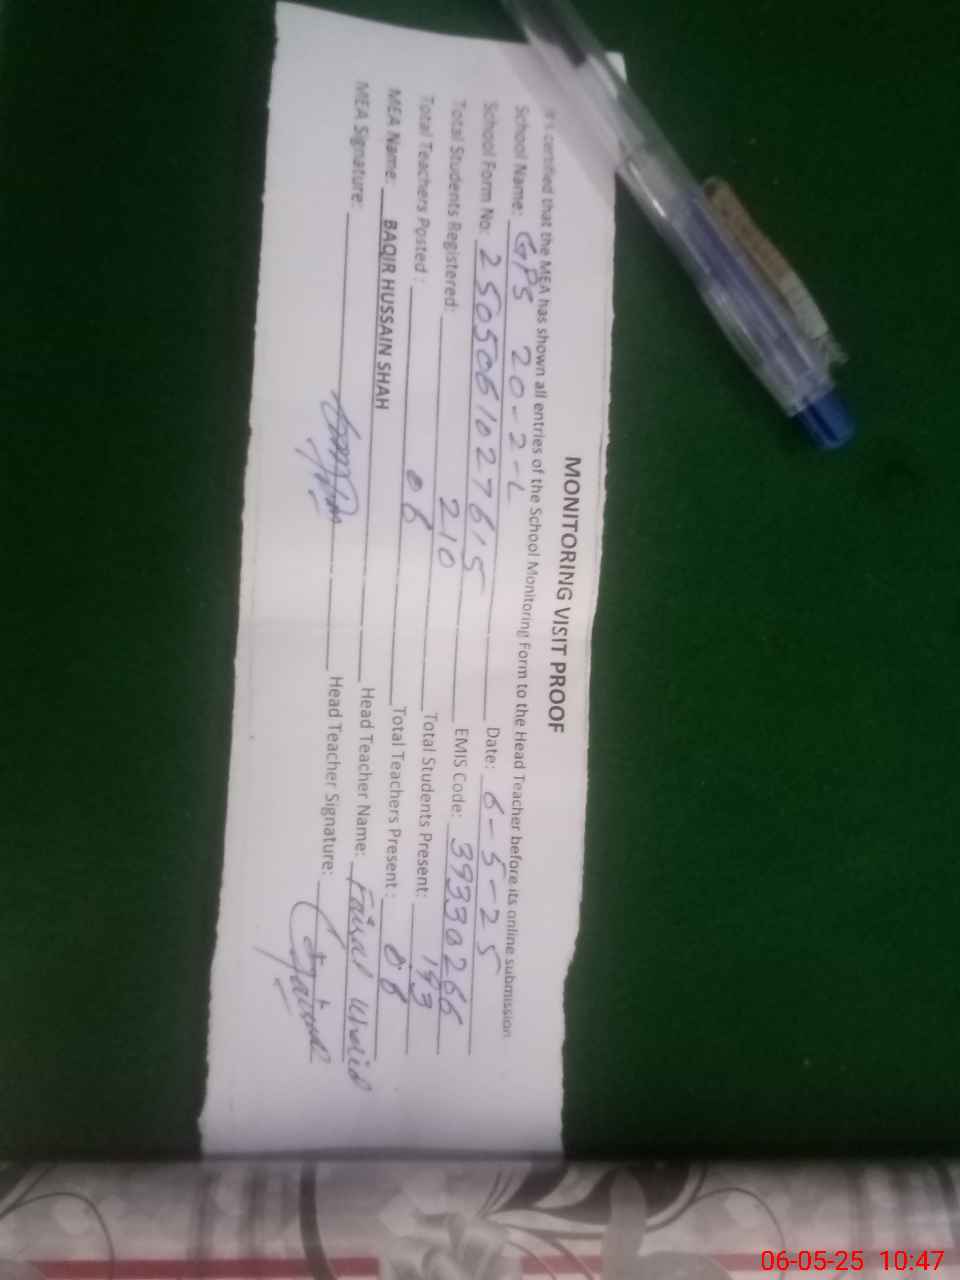 MONITORING VISIT PROOF
It's certified that the MEA has shown all entries of the School Monitoring Form to the Head Teacher before its online submission
School Name: GPS 20-2-L Date: 6-5-25
School Form No: 2505061027615 EMIS Code: 39330266
Total Students Registered: 210 Total Students Present: 193
Total Teachers Posted : 06 Total Teachers Present : 06
MEA Name: BAQIR HUSSAIN SHAH Head Teacher Name: Faisal Khalid
MEA Signature: Head Teacher Signature:
06-05-25 10:47